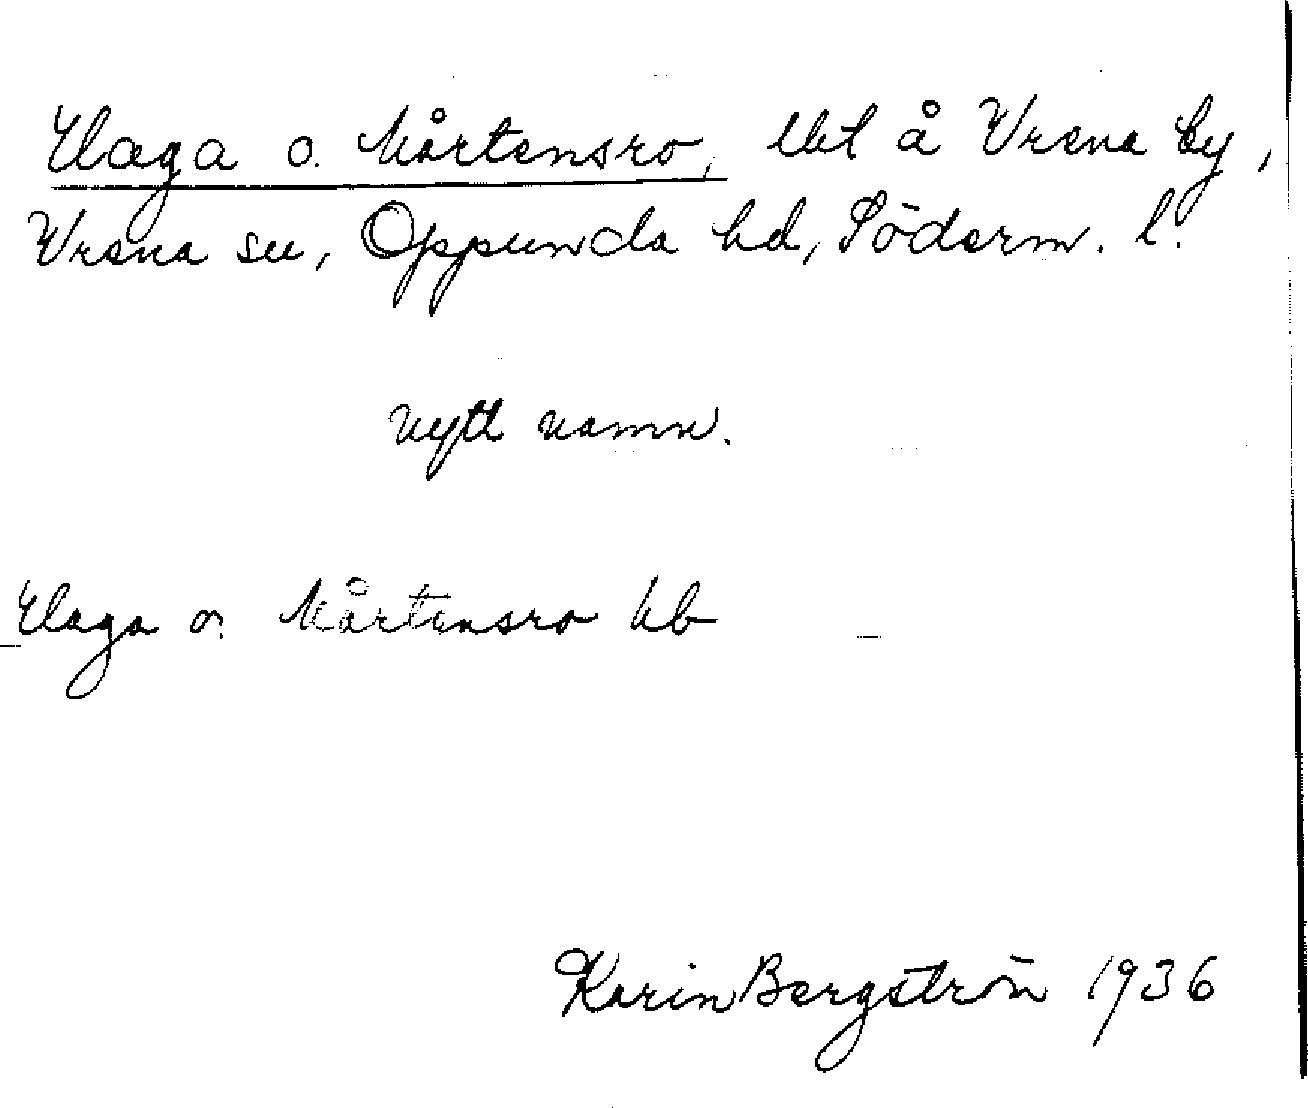 Haga o. Mårtensro, lht å Vrena by,
Vrena sn, Oppunda hd, Söderm. l.
Nytt namn.
Haga o. Mårtensro kb
Karin Bergström 1936